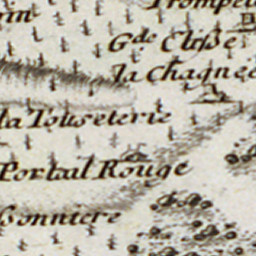 Trompet
in
Gde Clisse
la Chagnée
la Touseterie
Portail Rouge
sonniere